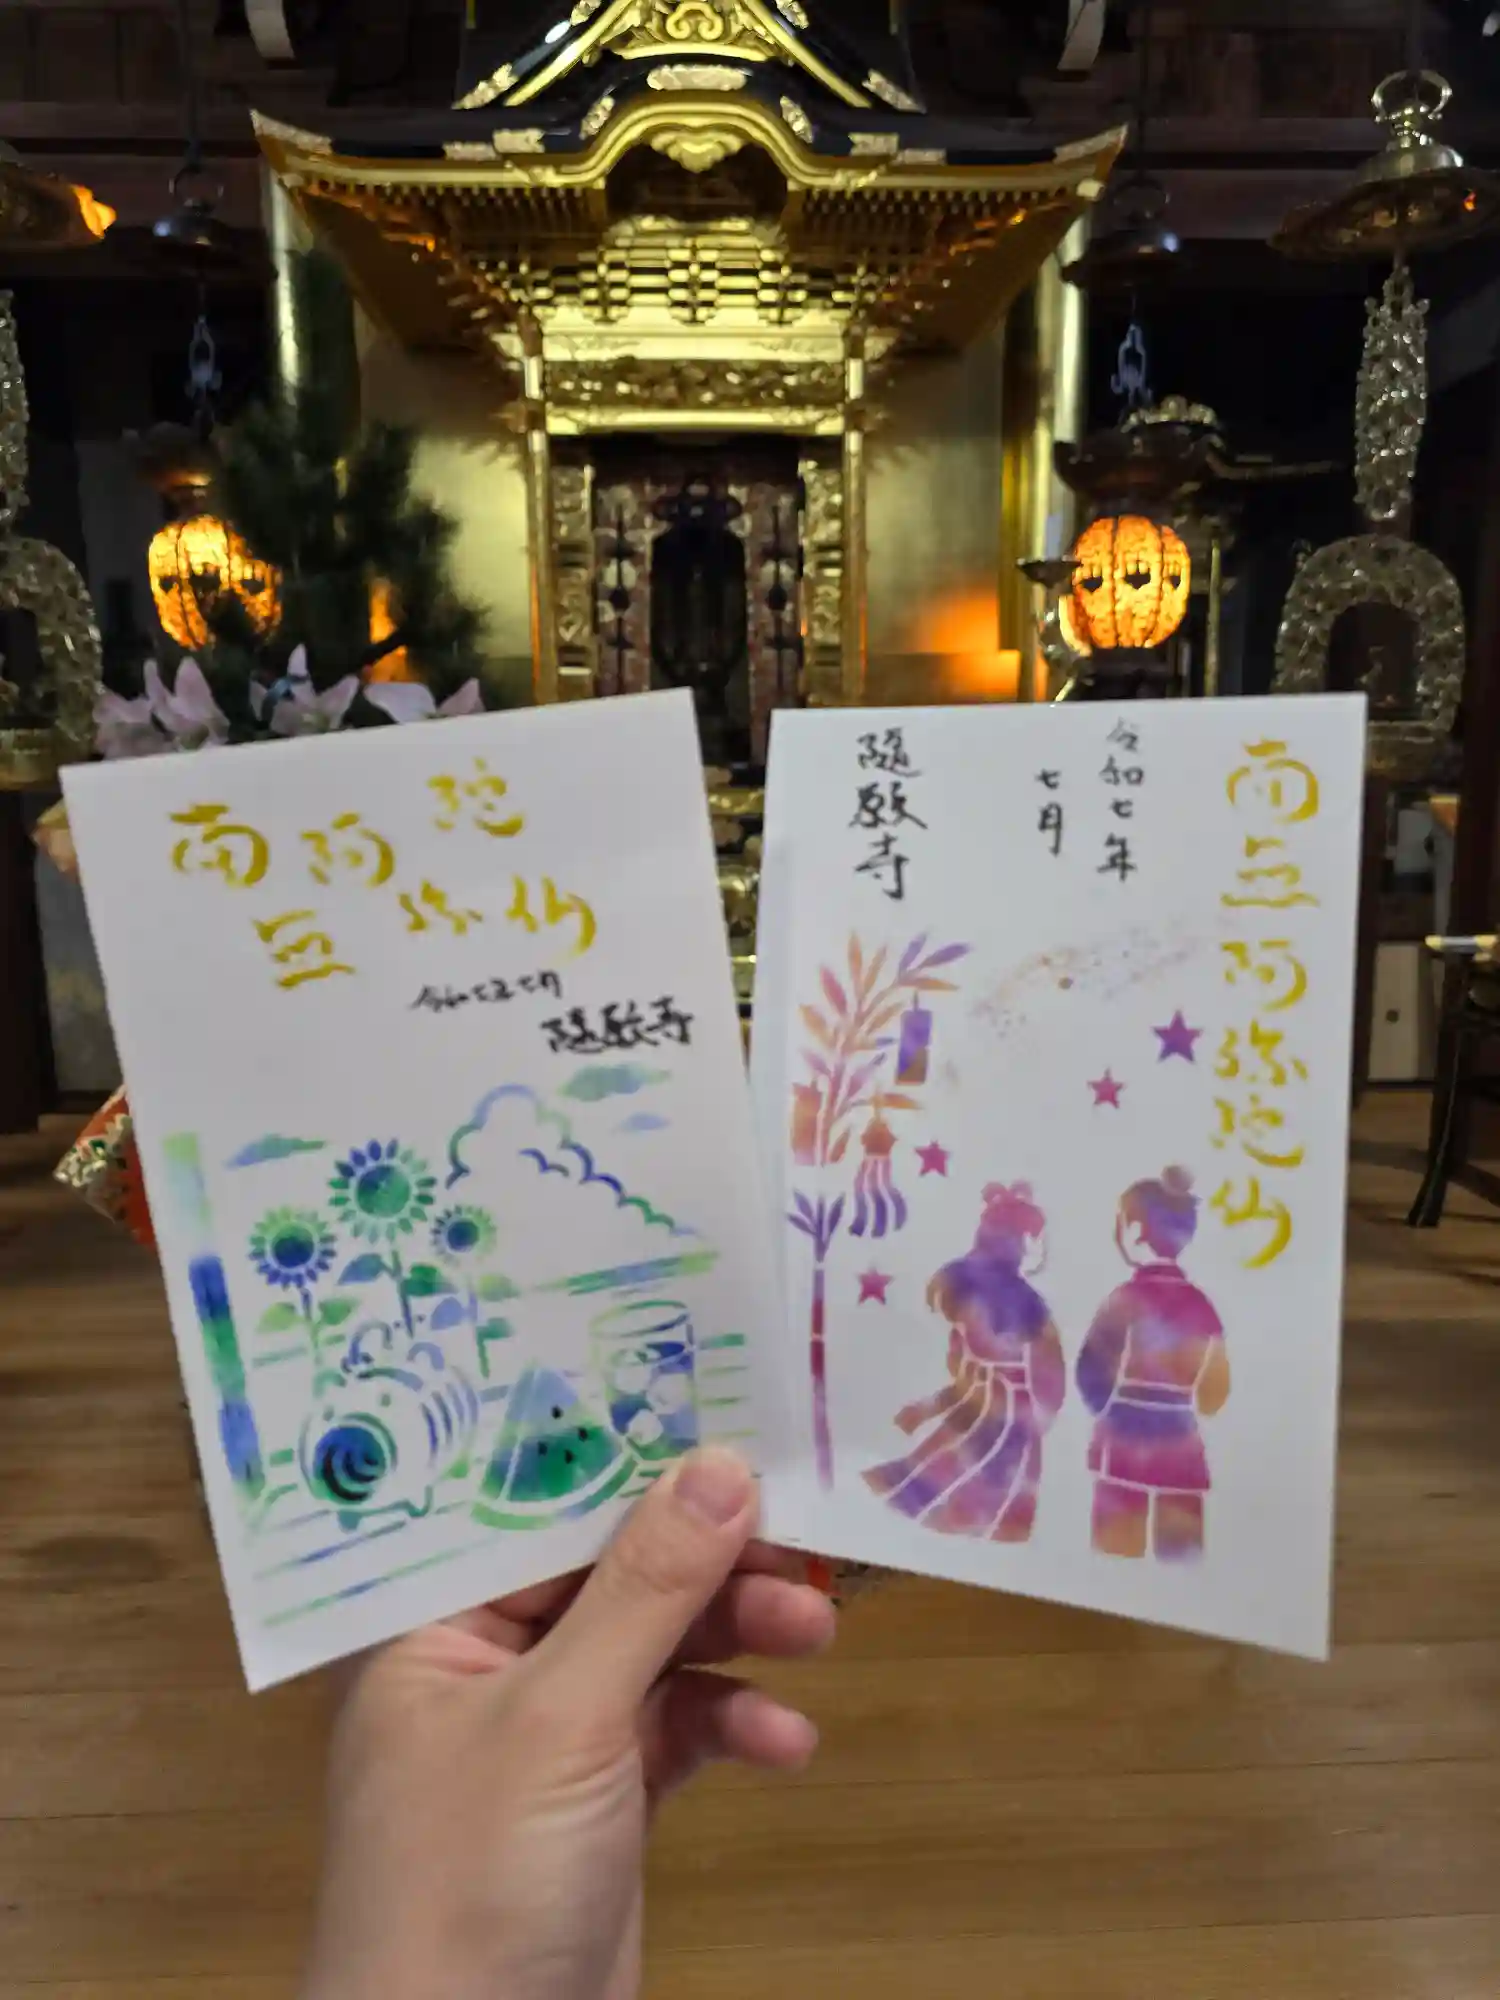 南無阿弥陀仏
令和七年七月
隨願寺
南無阿弥陀仏
令和七年
七月
隨願寺